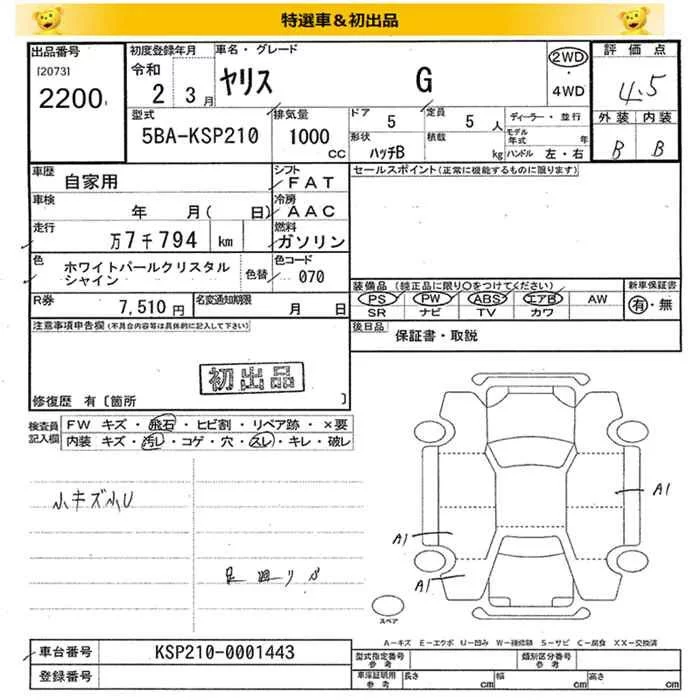 特選車＆初出品
出品番号
[2073]
2200
初度登録年月
令和
2 3月
車名・グレード
ヤリス G
2WD
・
4WD
評価点
4.5
外装 内装
B B
型式
5BA-KSP210
排気量
1000
CC
ドア
5
定員
5 人
形状
ハッチB
積載
kg
ディーラー・並行
モデル年式 年
ハンドル 左・右
車歴
自家用
シフト
FAT
車検
年 月( 日)
冷房
AAC
走行
万7千794 km
燃料
ガソリン
色
ホワイトパールクリスタルシャイン
色替
色コード
070
R券
7,510円
名変通知期限
月 日
セールスポイント(正常に機能するものに限ります)
装備品 (純正品に限り○をつけてください)
PS PW ABS エアB AW
SR ナビ TV カワ
新車保証書
有・無
後日品
保証書・取説
注意事項申告欄(不具合内容等は具体的に記入して下さい)
初出品
修復歴 有〔箇所 〕
検査員記入欄
FW キズ・飛石・ヒビ割・リペア跡・×要
内装 キズ・汚レ・コゲ・穴・スレ・キレ・破レ
小キズ小U
足廻リサ
A1
A1
A1
スペア
A－キズ E－エクボ U－凹み W－補修跡 S－サビ C－腐食 XX－交換済
車台番号
KSP210-0001443
登録番号
型式指定番号
参考
類別区分番号
参考
車庫証明用
参考
長さ cm
幅 cm
高さ cm